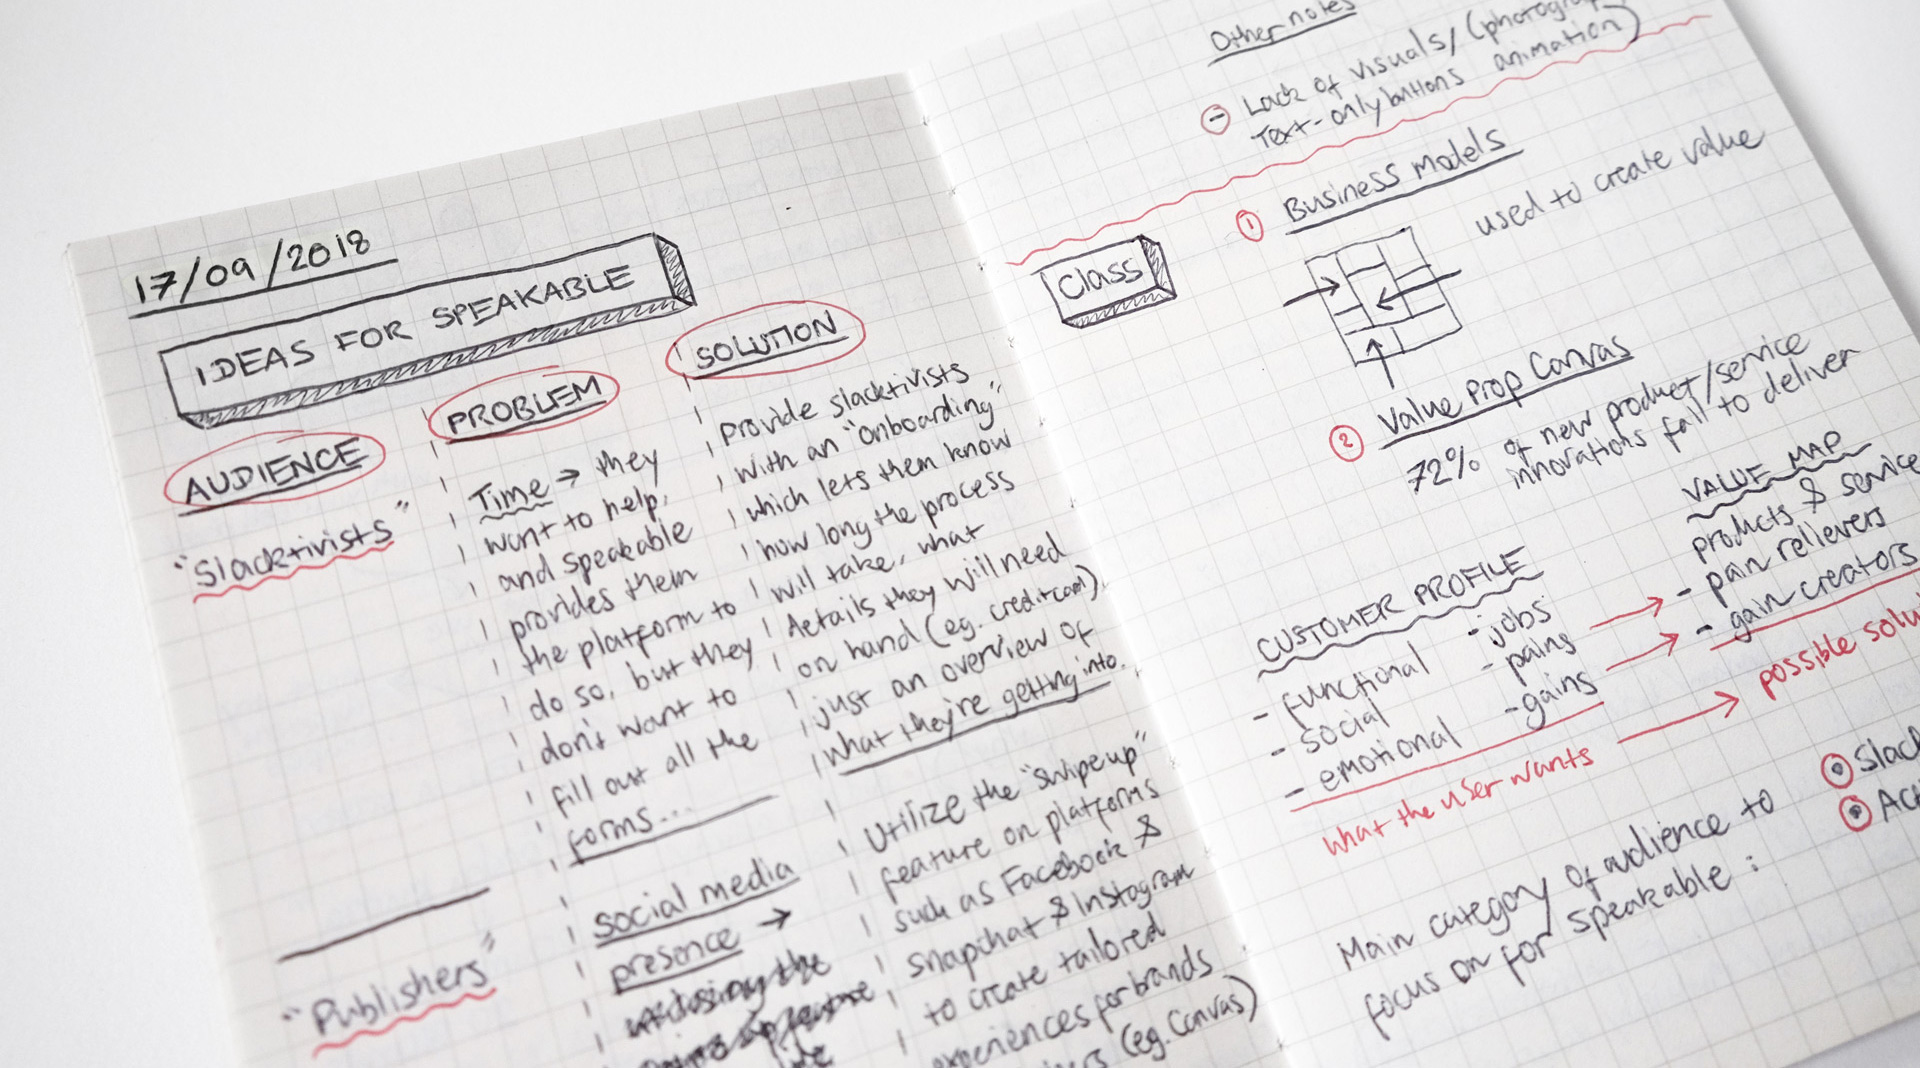 17/09/2018
IDEAS FOR SPEAKABLE
AUDIENCE
"Slacktivists"
PROBLEM
Time → they
want to help,
and speakable
provides them
the platform to
do so, but they
don't want to
fill out all the
forms...
SOLUTION
provide slacktivists
with an "onboarding"
which lets them know
how long the process
will take, what
details they will need
on hand (eg. creditcard)
just an overview of
what they're getting into.
"Publishers"
social media
presence →
Utilize the "swipe up"
feature on platforms
such as Facebook &
snapchat & Instagram
to create tailored
experiences for brands
(eg. Canvas)
Other notes
- Lack of visuals/(photogra
animation)
Text-only buttons
Class
1 Business models
used to create value
2 Value Prop Canvas
72% of new product/service
innovations fail to deliver
CUSTOMER PROFILE
- functional
- social
- emotional
- jobs
- pains
- gains
VALUE MAP
products & service
- pan relievers
- gain creators
what the user wants
possible solu
Slac
Act
Main category of audience to
focus on for speakable :